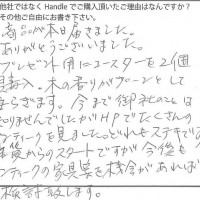 他社ではなく Handle でご購入頂いたご理由はなんですか?
その他ご自由にお書き下さい。
商品が本日届きました。
ありがとうございました。
プレゼント用にコースターを2個
購入。木の香りがプーンとして
今まで御社のことは
知りませんでしたがHPでたくさんの
アンティークを見ました。どれもステキで
からのスタートですが今後も
アンティークの家具等を機会があれば
検討致します。